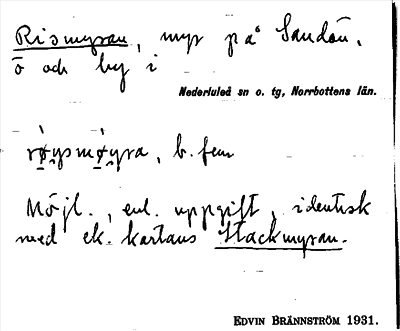 Rismyran, myr på Sandön,
ö och by i
Nederluleå sn o. tg, Norrbottens län.
røysmøyra, b. fem
Möjl., enl. uppgift, identisk
med ek. kartans Stackmyran.
EDVIN BRÄNNSTRÖM 1931.